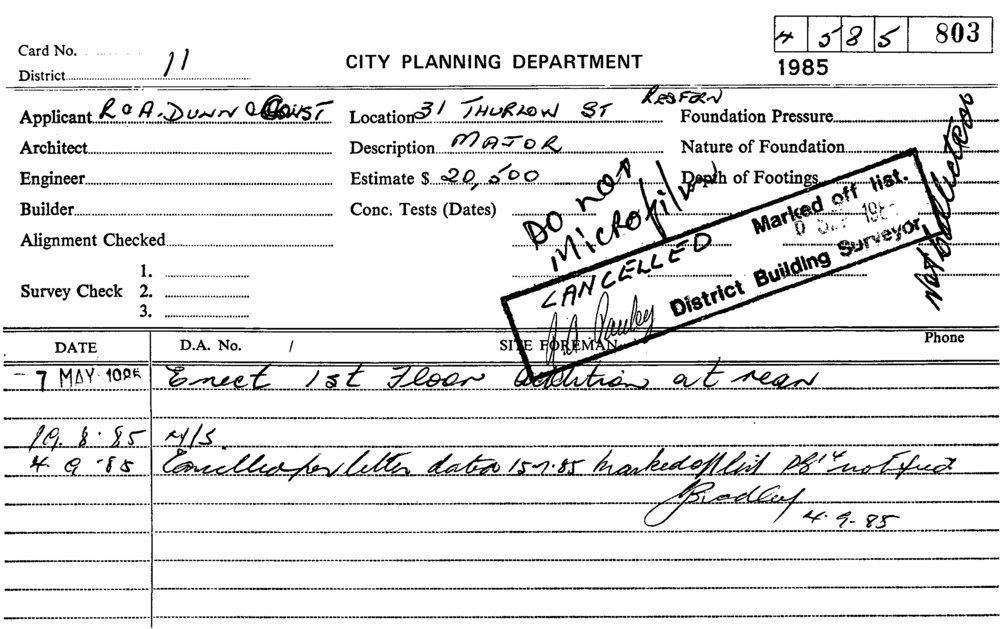 4 5 8 5 803
Card No.
District 11
CITY PLANNING DEPARTMENT
1985
Applicant R & A. DUNN CONST
Location 31 THURLOW ST REDFERN
Foundation Pressure
Architect
Description MAJOR
Nature of Foundation
Engineer
Estimate $ 20,500
Depth of Footings
Builder
Conc. Tests (Dates)
Alignment Checked
Survey Check
1.
2.
3.
DO NOT
MICROFILM
CANCELLED
Marked off list.
District Building Surveyor
DATE D.A. No. / SITE FOREMAN Phone
7 MAY 1985 Erect 1st Floor addition at rear
19.8.85 M/S.
4.9.85 Cancelled per letter dated 15.7.85 Marked off list notified
4.9.85